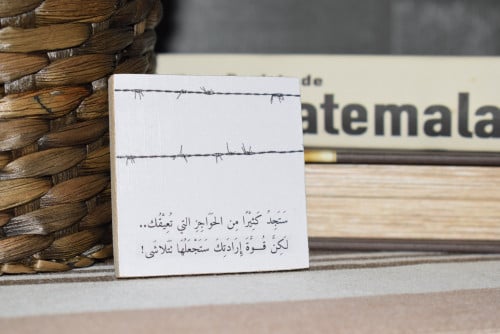 de
atemala
سَتَجِدُ كَثِيْرًا مِن الحَوَاجِزِ التي تُعِيْقُك..
لَكِنَّ قُـوَّةَ إِرَادَتِكَ سَتَجْعَلُهَا تَتَلاشَى!